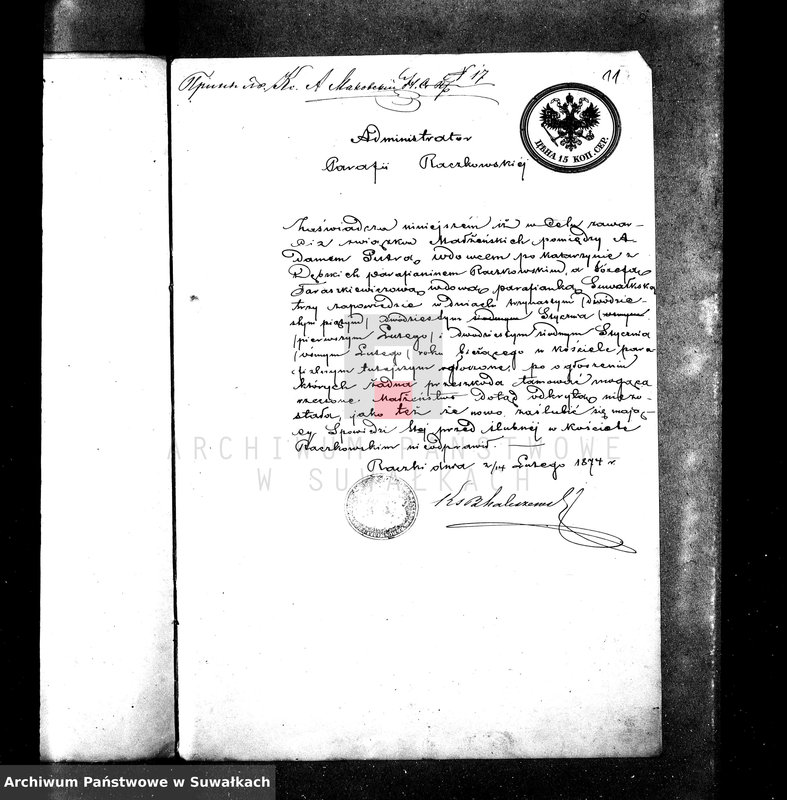 А Маковскій № 17
11
ЦѢНА 15 КОП. СЕР.
Administrator
Parafii Raczkowskiej
Zaświadcza niniejszem iż w Celu zawar-
cia związku Małżeńskich pomiędzy A
damem Putra, wdowcem po Katarzynie z
parafianinem Raczkowskim, a Józefą
Taraszkiewiczową wdową parafianką Suwałkską
trzy zapowiedzie w dniach trzynastym /dwudzie-
stym piątym/ dwudziestym siódmym Stycznia
/pierwszym Lutego/ i dwudziestym siódmym Stycznia
/ósmym Lutego/ roku bieżącego w Kościele para
fialnym tutejszym ogłoszone, po ogłoszeniu
których żadna przeszkoda tamować mogąca
rzeczone Małżeństwo dotąd odkrytą niezo-
stała, jako też że nowo zaślubić się mają-
cy Spowiedzi Stej przed ślubnej w Kościele
Raczkowskim nieodprawił.
Raczki dnia 2/14 Lutego 1874 r.
ARCHIWUM PAŃSTWOWE
W SUWAŁKACH
Archiwum Państwowe w Suwałkach